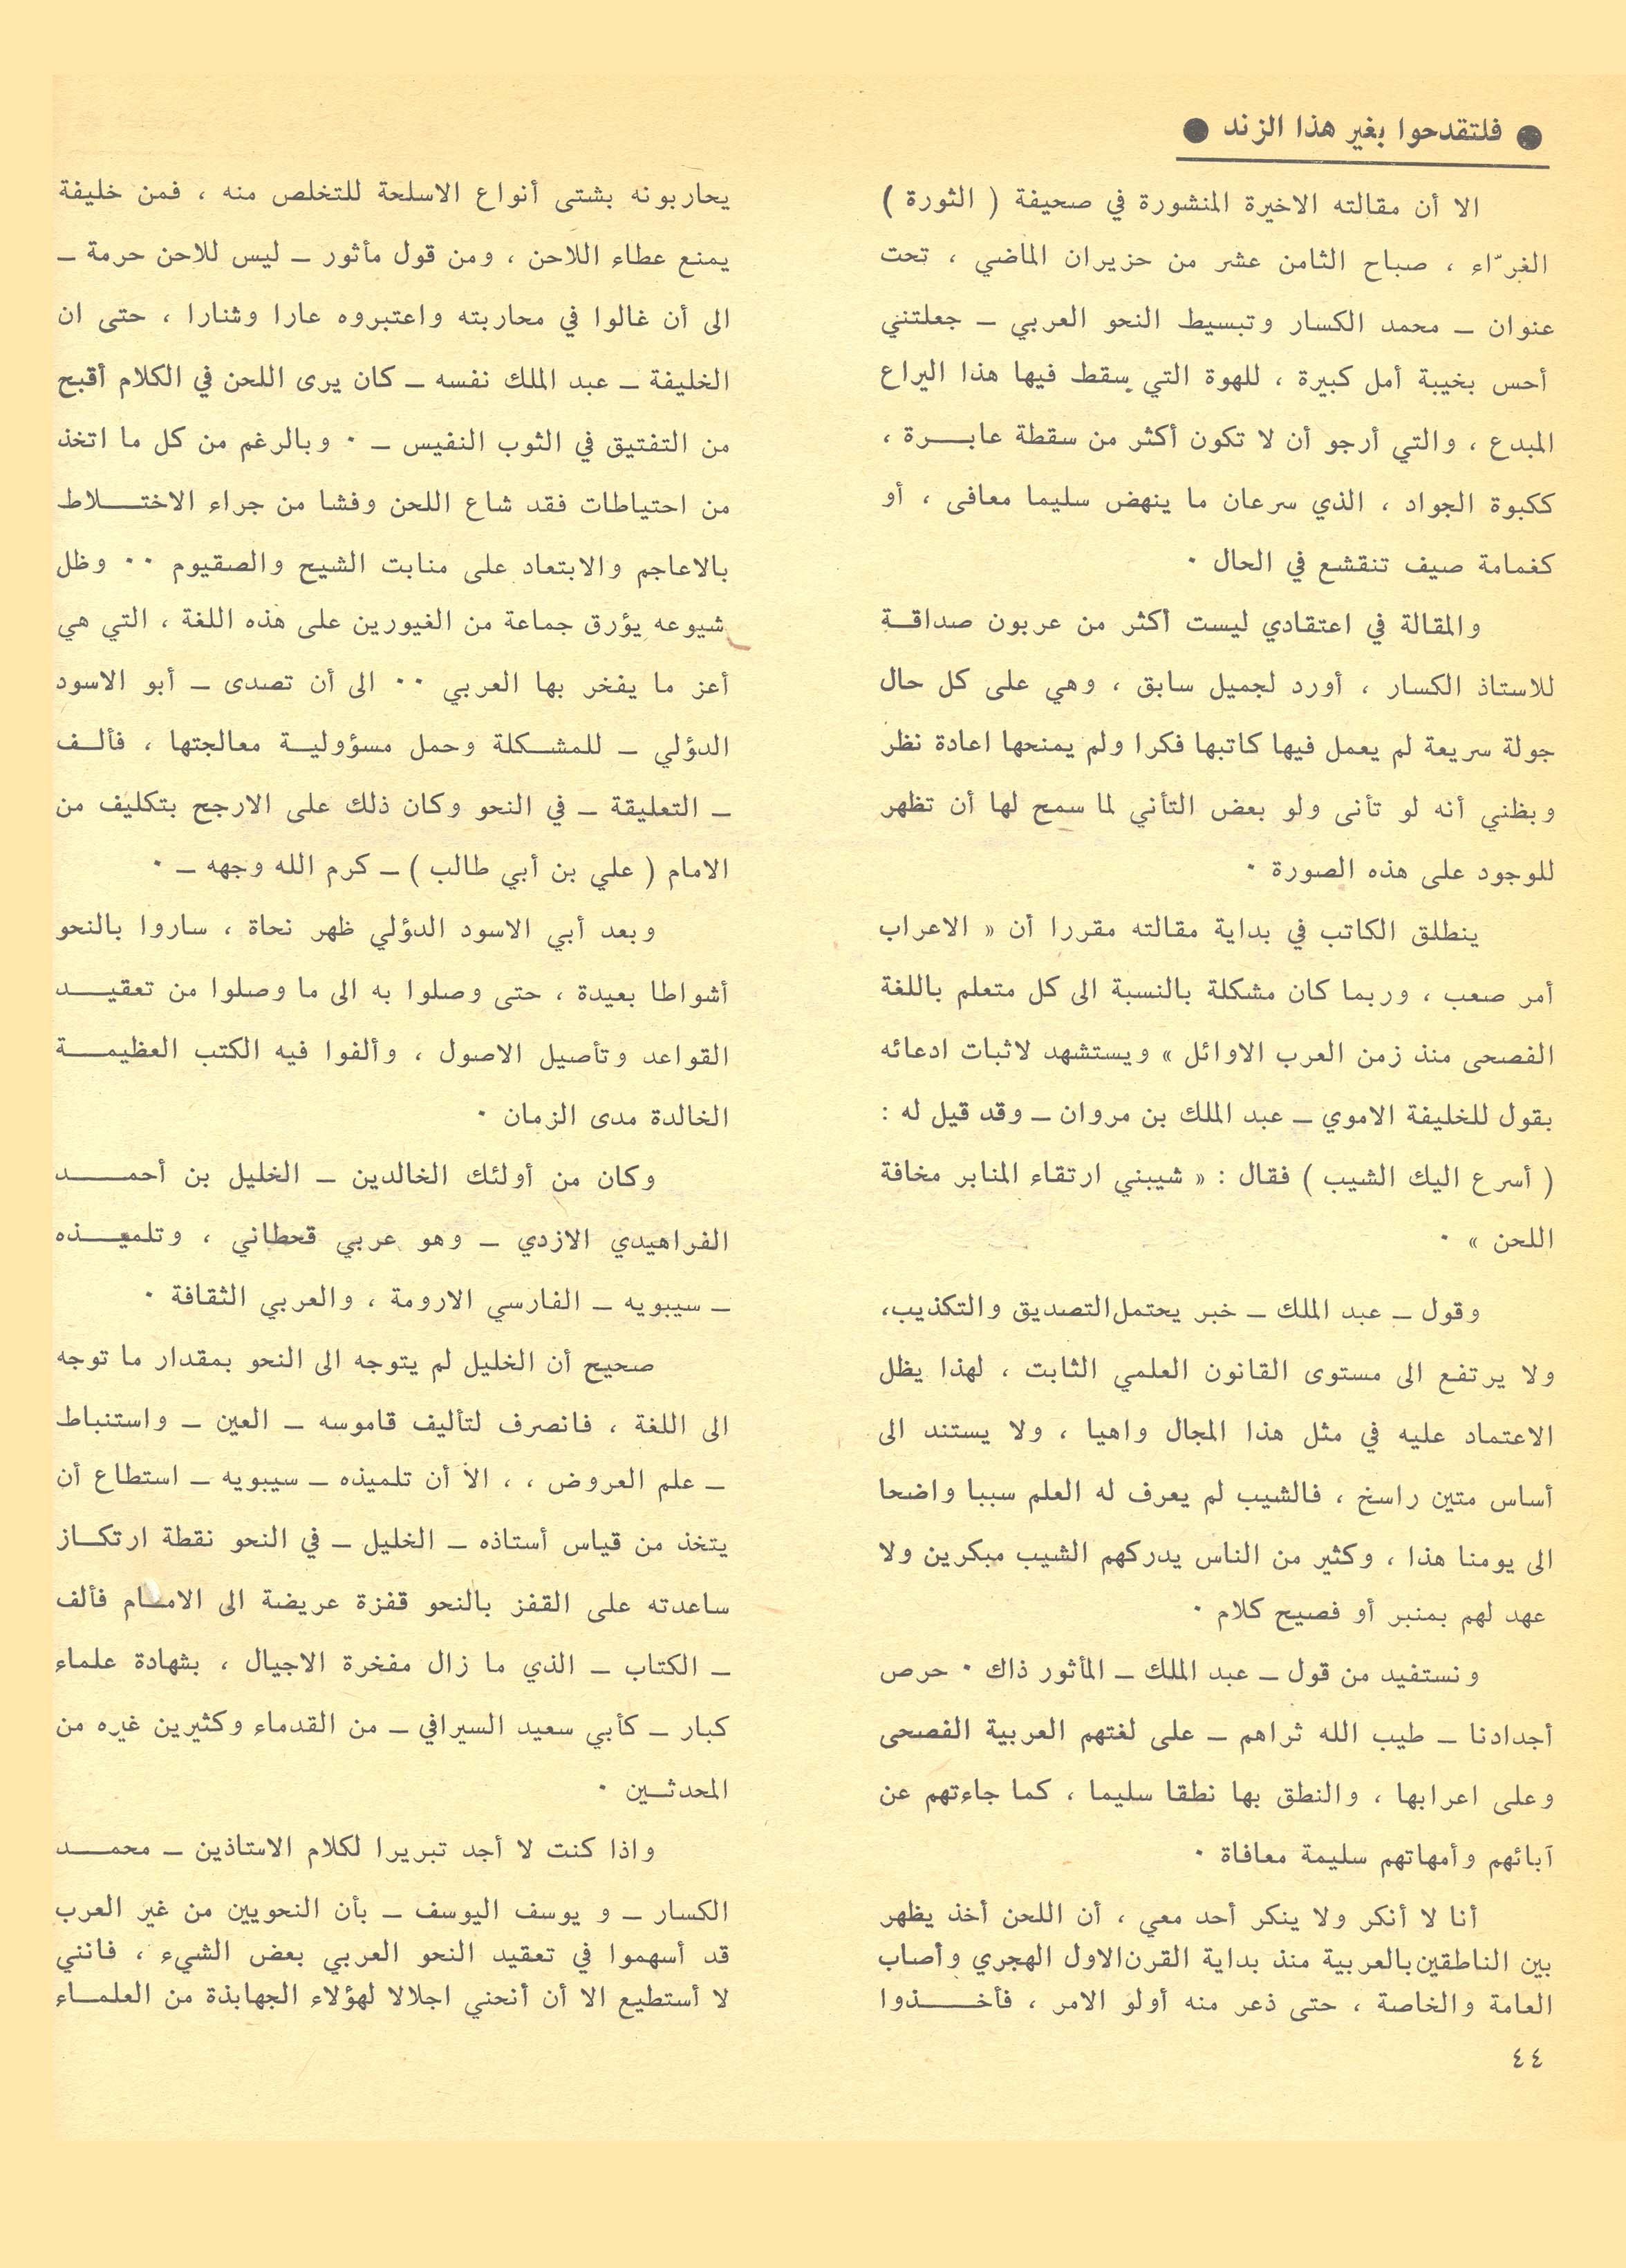 ● فلتقدحوا بغير هذا الزند ●
الا أن مقالته الاخيرة المنشورة في صحيفة ( الثورة )
الغرّاء ، صباح الثامن عشر من حزيران الماضي ، تحت
عنوان ــ محمد الكسار وتبسيط النحو العربي ــ جعلتني
أحس بخيبة أمل كبيرة ، للهوة التي سقط فيها هذا اليراع
المبدع ، والتي أرجو أن لا تكون أكثر من سقطة عابـــرة ،
ككبوة الجواد ، الذي سرعان ما ينهض سليما معافى ، أو
كغمامة صيف تنقشع في الحال ٠
والمقالة في اعتقادي ليست أكثر من عربون صداقـة
للاستاذ الكسار ، أورد لجميل سابق ، وهي على كل حال
جولة سريعة لم يعمل فيها كاتبها فكرا ولم يمنحها اعادة نظر
وبظني أنه لو تأنى ولو بعض التأني لما سمح لها أن تظهر
للوجود على هذه الصورة ٠
ينطلق الكاتب في بداية مقالته مقررا أن « الاعراب
أمر صعب ، وربما كان مشكلة بالنسبة الى كل متعلم باللغة
الفصحى منذ زمن العرب الاوائل » ويستشهد لاثبات ادعائه
بقول للخليفة الاموي ــ عبد الملك بن مروان ــ وقد قيل له :
( أسرع اليك الشيب ) فقال : « شيبني ارتقاء المنابر مخافة
اللحن » ٠
وقول ــ عبد الملك ــ خبر يحتمل التصديق والتكذيب،
ولا يرتفع الى مستوى القانون العلمي الثابت ، لهذا يظل
الاعتماد عليه في مثل هذا المجال واهيا ، ولا يستند الى
أساس متين راسخ ، فالشيب لم يعرف له العلم سببا واضحا
الى يومنا هذا ، وكثير من الناس يدركهم الشيب مبكرين ولا
عهد لهم بمنبر أو فصيح كلام ٠
ونستفيد من قول ــ عبد الملك ــ المأثور ذاك ٠ حرص
أجدادنا ــ طيب الله ثراهم ــ على لغتهم العربية الفصحى
وعلى اعرابها ، والنطق بها نطقا سليما ، كما جاءتهم عن
آبائهم وأمهاتهم سليمة معافاة ٠
أنا لا أنكر ولا ينكر أحد معي ، أن اللحن أخذ يظهر
بين الناطقين بالعربية منذ بداية القرن الاول الهجري وأصاب
العامة والخاصة ، حتى ذعر منه أولو الامر ، فأخــــذوا
يحاربونه بشتى أنواع الاسلحة للتخلص منه ، فمن خليفة
يمنع عطاء اللاحن ، ومن قول مأثور ــ ليس للاحن حرمة ــ
الى أن غالوا في محاربته واعتبروه عارا وشنارا ، حتى ان
الخليفة ــ عبد الملك نفسه ــ كان يرى اللحن في الكلام أقبح
من التفتيق في الثوب النفيس ــ ٠ وبالرغم من كل ما اتخذ
من احتياطات فقد شاع اللحن وفشا من جراء الاختــــلاط
بالاعاجم والابتعاد على منابت الشيح والصقيوم ٠٠ وظل
شيوعه يؤرق جماعة من الغيورين على هذه اللغة ، التي هي
أعز ما يفخر بها العربي ٠٠ الى أن تصدى ــ أبو الاسود
الدؤلي ــ للمشـكلة وحمل مسؤوليـة معالجتها ، فألـف
ــ التعليقة ــ في النحو وكان ذلك على الارجح بتكليف من
الامام ( علي بن أبي طالب ) ــ كرم الله وجهه ــ ٠
وبعد أبي الاسود الدؤلي ظهر نحاة ، ساروا بالنحو
أشواطا بعيدة ، حتى وصلوا به الى ما وصلوا من تعقيــد
القواعد وتأصيل الاصول ، وألفوا فيه الكتب العظيمـــة
الخالدة مدى الزمان ٠
وكان من أولئك الخالدين ــ الخليل بن أحمـــد
الفراهيدي الازدي ــ وهو عربي قحطاني ، وتلميــذه
ــ سيبويه ــ الفارسي الارومة ، والعربي الثقافة ٠
صحيح أن الخليل لم يتوجه الى النحو بمقدار ما توجه
الى اللغة ، فانصرف لتأليف قاموسه ــ العين ــ واستنباط
ــ علم العروض ، ، الا أن تلميذه ــ سيبويه ــ استطاع أن
يتخذ من قياس أستاذه ــ الخليل ــ في النحو نقطة ارتكـاز
ساعدته على القفز بالنحو قفزة عريضة الى الامـام فألف
ــ الكتاب ــ الذي ما زال مفخرة الاجيال ، بشهادة علماء
كبار ــ كأبي سعيد السيرافي ــ من القدماء وكثيرين غيره من
المحدثــين ٠
واذا كنت لا أجد تبريرا لكلام الاستاذين ــ محمــد
الكسار ــ و يوسف اليوسف ــ بأن النحويين من غير العرب
قد أسهموا في تعقيد النحو العربي بعض الشيء ، فانني
لا أستطيع الا أن أنحني اجلالا لهؤلاء الجهابذة من العلمــاء
٤٤